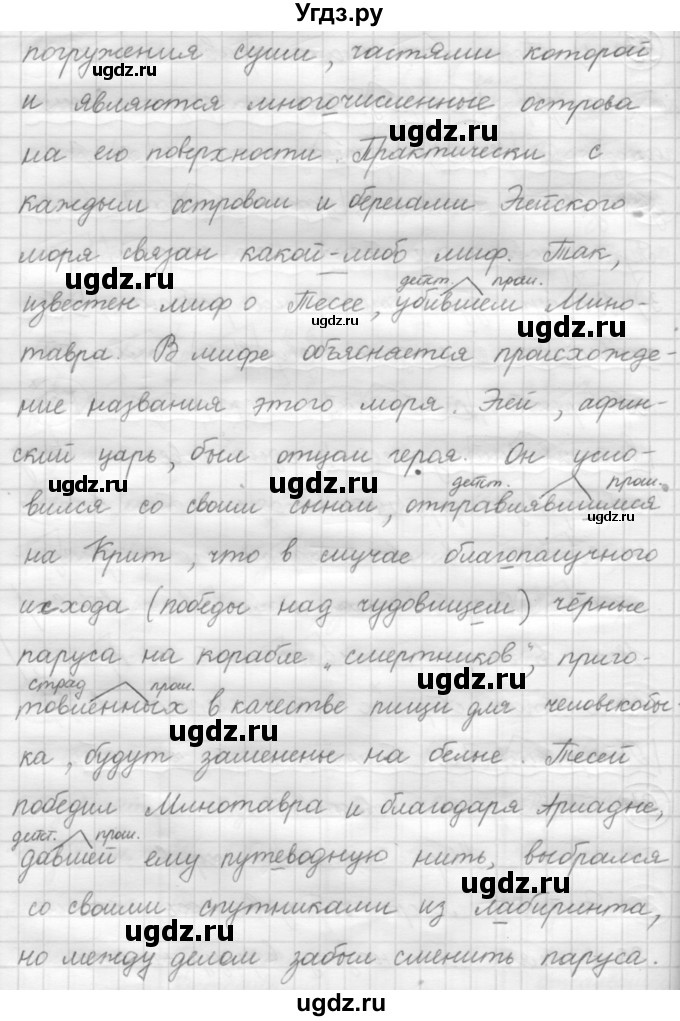 Угдз.ру
погружения суши, частями которой
ugdz.ru
и являются многочисленные острова
ugdz.ru
на его поверхности. Практически с
каждым островом и берегами Эгейского
моря связан какой-либо миф. Так,
ugdz.ru
действ. прош.
известен миф о Тесее, убившем Мино-
ugdz.ru
ugdz.ru
тавра. В мифе объясняется происхожде-
ние названия этого моря. Эгей, афин-
ский царь, был отцом героя. Он усло-
ugdz.ru
ugdz.ru
действ. прош.
вился со своим сыном, отправлявшимся
ugdz.ru
на Крит, что в случае благополучного
исхода (победы над чудовищем) чёрные
паруса на корабле „смертников", приго-
ugdz.ru
страд прош.
товленных в качестве пищи для человекобы-
ugdz.ru
ка, будут заменены на белые. Тесей
победил Минотавра и благодаря Ариадне,
действ. прош.
давшей ему путеводную нить, выбрался
ugdz.ru
со своими спутниками из лабиринта,
ugdz.ru
но между делом забыл сменить паруса.
ugdz.ru